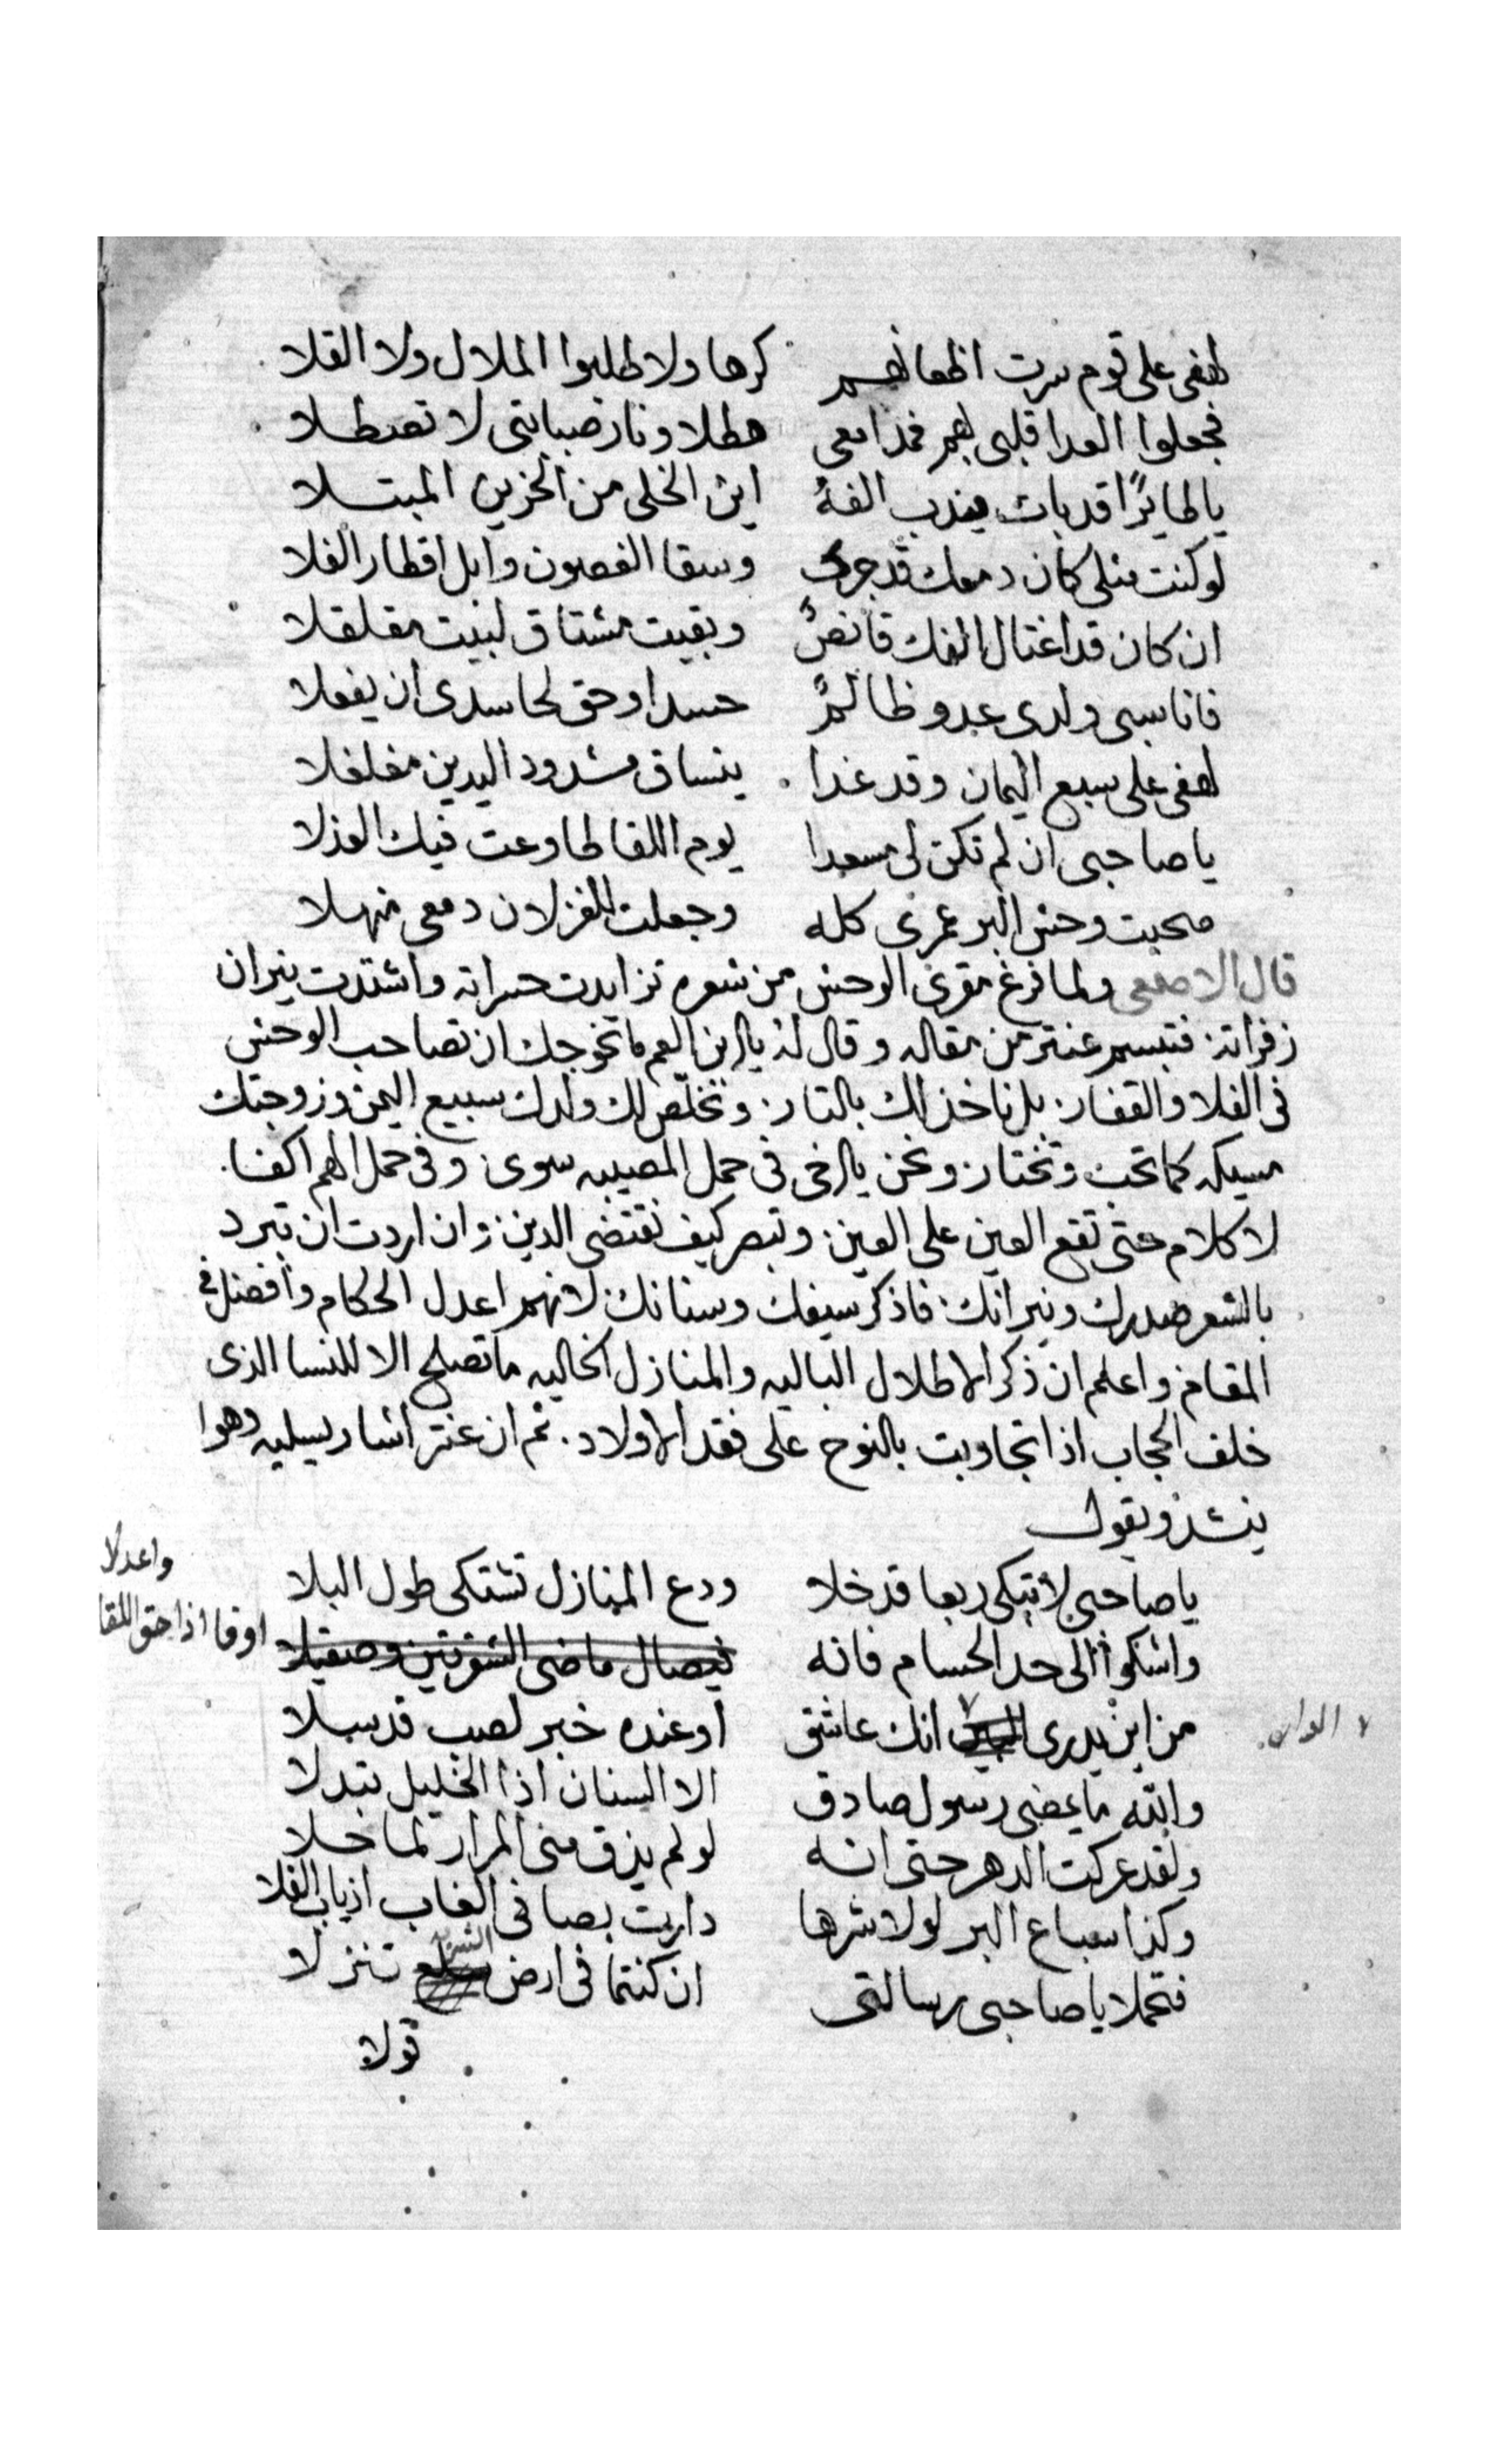 لهفى على قوم سرت اظعانهم كرها ولا طلبوا الملال ولا القلا
فجعلوا العدا قلبى بهم فمدامعى هطلا ونار صبابتى لا تصطلا
يا طايرًا قد بات يندب الفهُ اين الخلى من الحزين المبتلا
لو كنت مثلى كان دمعك قد جرى وسقا الغصون وابل اقطار الفلا
ان كان قد اغتال الفك قانصٌ وبقيت مشتاق لبيت مقلقلا
فانا سبى ولدى عدو ظالمٌ حسدا وحق لحاسدى ان يفعلا
لهفى على سبيع اليمان وقد غدا ينساق مشدود اليدين مغلغلا
يا صاحبى ان لم تكن لى مسعدا يوم اللقا طاوعت فيك العذلا
صحبت وحش البر عمرى كله وجعلت للغزلان دمعى منهلا
قال الاصمعى ولما فرغ مقرى الوحش من شعره تزايدت حسراته واشتدت نيران
زفراته فتبسم عنتر من مقاله وقال له يا ابن العم ما نحوجك ان تصاحب الوحش
فى الفلا والقفار بل ناخذ لك بالتار ونخلّص لك ولدك سبيع اليمن وزوجتك
مسيكه كما تحب وتختار ونحن يا اخى فى حمل المصيبه سوى وفى حمل الهم اكفا
لا كلام حتى تقع العين على العين وتبصر كيف نقتضى الدين وان اردت ان تبرد
بالشعر صدرك ونيرانك فاذكر سيفك وسنانك لانهم اعدل الحكام وافضل فى
المقام واعلم ان ذكر الاطلال الباليه والمنازل الخاليه ما تصلح الا للنسا الذى
خلف الحجاب اذا تجاوبت بالنوح على فقد الاولاد ثم ان عنتر اشار يسليه وهوا
ينشد ويقول
يا صاحبى لا تبكى ربعا قد خلا ودع المنازل تشتكى طول البلا
واشكوا الى حد الحسام فانه فيصال ماضى الشفرتين وصقيلا
اوفا اذا حق اللقا واعدلا
من اين يدرى انك عاشق او عنده خبر لصب قد سلا
والله ما يمضى رسول صادق الا السنان اذا الخليل تبدلا
ولقد عركت الدهر حتى انه لو لم يذق منى المرار لما حلا
وكذا سباع البر لولا شرها داريت بصا فى الغاب ازياب الفلا
فتحملا يا صاحبى رسالتى ان كنتما فى ارض تنزلا
قولا